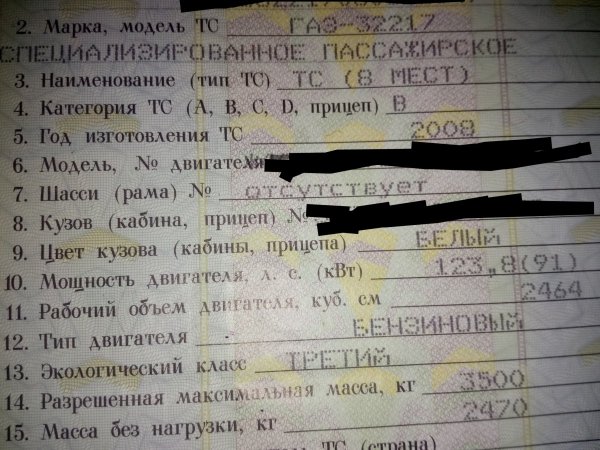 2. Марка, модель ТС ГАЗ-32217
СПЕЦИАЛИЗИРОВАННОЕ ПАССАЖИРСКОЕ
3. Наименование (тип ТС) ТС (8 МЕСТ)
4. Категория ТС (A, B, C, D, прицеп) B
5. Год изготовления ТС 2008
6. Модель, № двигателя
7. Шасси (рама) № отсутствует
8. Кузов (кабина, прицеп) №
9. Цвет кузова (кабины, прицепа) БЕЛЫЙ
10. Мощность двигателя, л. с. (кВт) 123,8(91)
11. Рабочий объем двигателя, куб. см 2464
12. Тип двигателя БЕНЗИНОВЫЙ
13. Экологический класс ТРЕТИЙ
14. Разрешенная максимальная масса, кг 3500
15. Масса без нагрузки, кг 2470
ТС (страна)